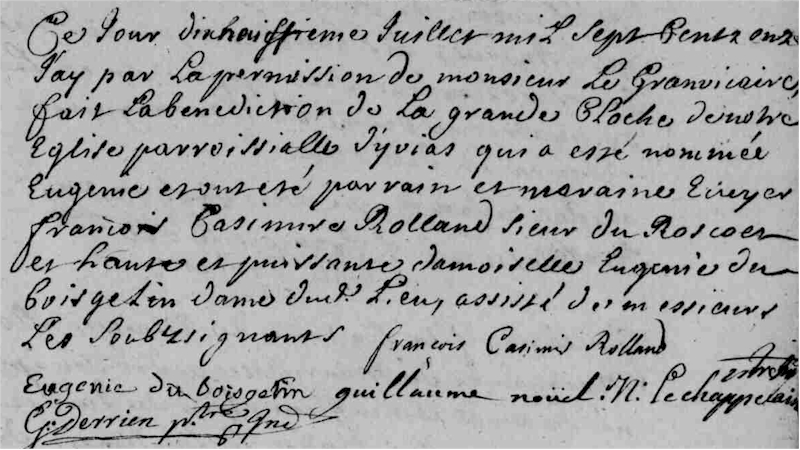 Ce Jour dixhuittieme Juillet mil Sept Centz onze
J'ay par La permission de monsieur Le Granvicaire,
fait Labenediction de La grande Cloche de notre
Eglise parroissialle d'yvias qui a esté nommée
Eugenie et ont eté parrain et maraine Ecuyer
françois Casimire Rolland sieur du Roscoet
et haute et puissante damoiselle Eugenie du
boisgelin dame dud.t Lieu, assisté de messieurs
Les Soubzsignants françois Casimir Rolland
Eugenie du boisgelin guillaume noüel N: Lechappelain
G: Derrien p.tre